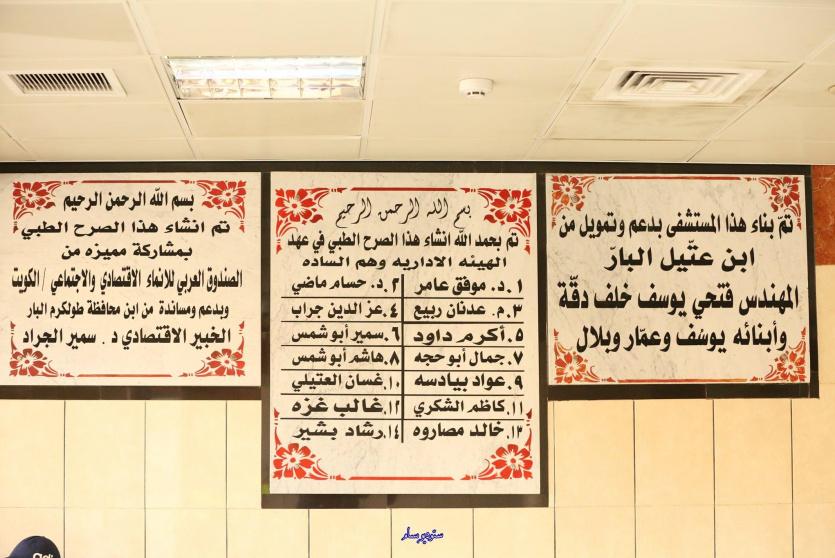 تمّ بناء هذا المستشفى بدعم وتمويل من
ابن عتّيل البارّ
المهندس فتحي يوسف خلف دقّة
وأبنائه يوسُف وعمّار وبلال
بسم الله الرحمن الرحيم
تم بحمد الله انشاء هذا الصرح الطبي في عهد
الهيئه الاداريه وهم الساده
١. د. موفق عامر ٢. د. حسام ماضي
٣. م. عدنان ربيع ٤. عز الدين جراب
٥. أكرم داود ٦. سمير أبو شمس
٧. جمال أبو حجه ٨. هاشم أبو شمس
٩. عواد بيادسه ١٠. غسان العتيلي
١١. كاظم الشكري ١٢. غالب غزه
١٣. خالد مصاروه ١٤. رشاد بشير
بسم الله الرحمن الرحيم
تم انشاء هذا الصرح الطبي
بمشاركة مميزه من
الصندوق العربي للانماء الاقتصادي والاجتماعي / الكويت
وبدعم ومساندة من ابن محافظة طولكرم البار
الخبير الاقتصادي د . سمير الجراد